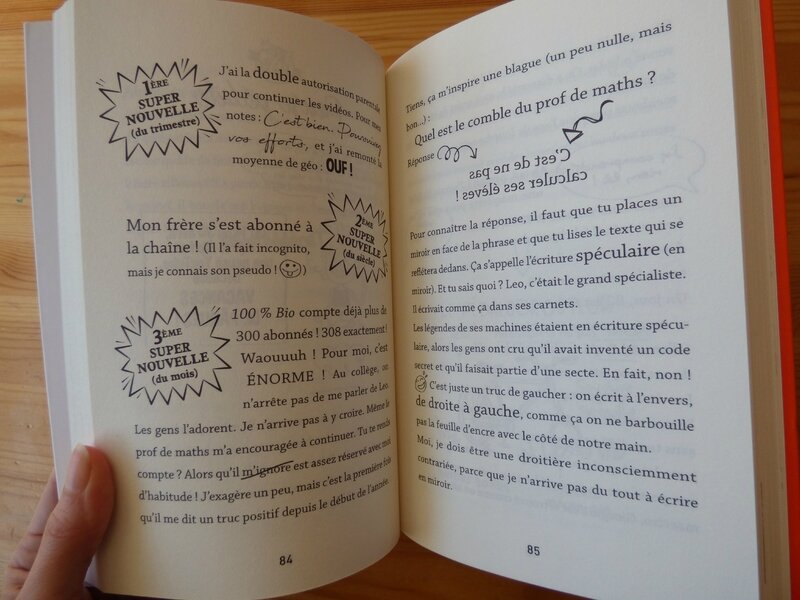 1ÈRE
SUPER
NOUVELLE
(du trimestre)
J'ai la double autorisation parentale
pour continuer les vidéos. Pour mes
notes : C'est bien. Poursuivez
vos efforts, et j'ai remonté la
moyenne de géo : OUF !
Mon frère s'est abonné à
la chaîne ! (Il l'a fait incognito,
mais je connais son pseudo ! )
2ÈME
SUPER
NOUVELLE
(du siècle)
3ÈME
SUPER
NOUVELLE
(du mois)
100 % Bio compte déjà plus de
300 abonnés ! 308 exactement !
Waouuuh ! Pour moi, c'est
ÉNORME ! Au collège, on
n'arrête pas de me parler de Leo.
Les gens l'adorent. Je n'arrive pas à y croire. Même le
prof de maths m'a encouragée à continuer. Tu te rends
compte ? Alors qu'il m'ignore est assez réservé avec moi
d'habitude ! J'exagère un peu, mais c'est la première fois
qu'il me dit un truc positif depuis le début de l'année.
84
Tiens, ça m'inspire une blague (un peu nulle, mais
bon...) :
Quel est le comble du prof de maths ?
Réponse
C'est de ne pas
calculer ses élèves !
Pour connaître la réponse, il faut que tu places un
miroir en face de la phrase et que tu lises le texte qui se
reflétera dedans. Ça s'appelle l'écriture spéculaire (en
miroir). Et tu sais quoi ? Leo, c'était le grand spécialiste.
Il écrivait comme ça dans ses carnets.
Les légendes de ses machines étaient en écriture spécu-
laire, alors les gens ont cru qu'il avait inventé un code
secret et qu'il faisait partie d'une secte. En fait, non !
C'est juste un truc de gaucher : on écrit à l'envers,
de droite à gauche, comme ça on ne barbouille
pas la feuille d'encre avec le côté de notre main.
Moi, je dois être une droitière inconsciemment
contrariée, parce que je n'arrive pas du tout à écrire
en miroir.
85